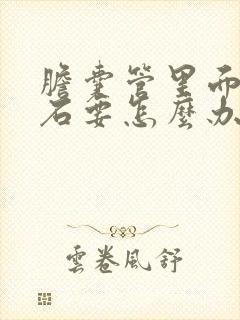 膽囊管里而
石要怎麼办
雲卷風舒